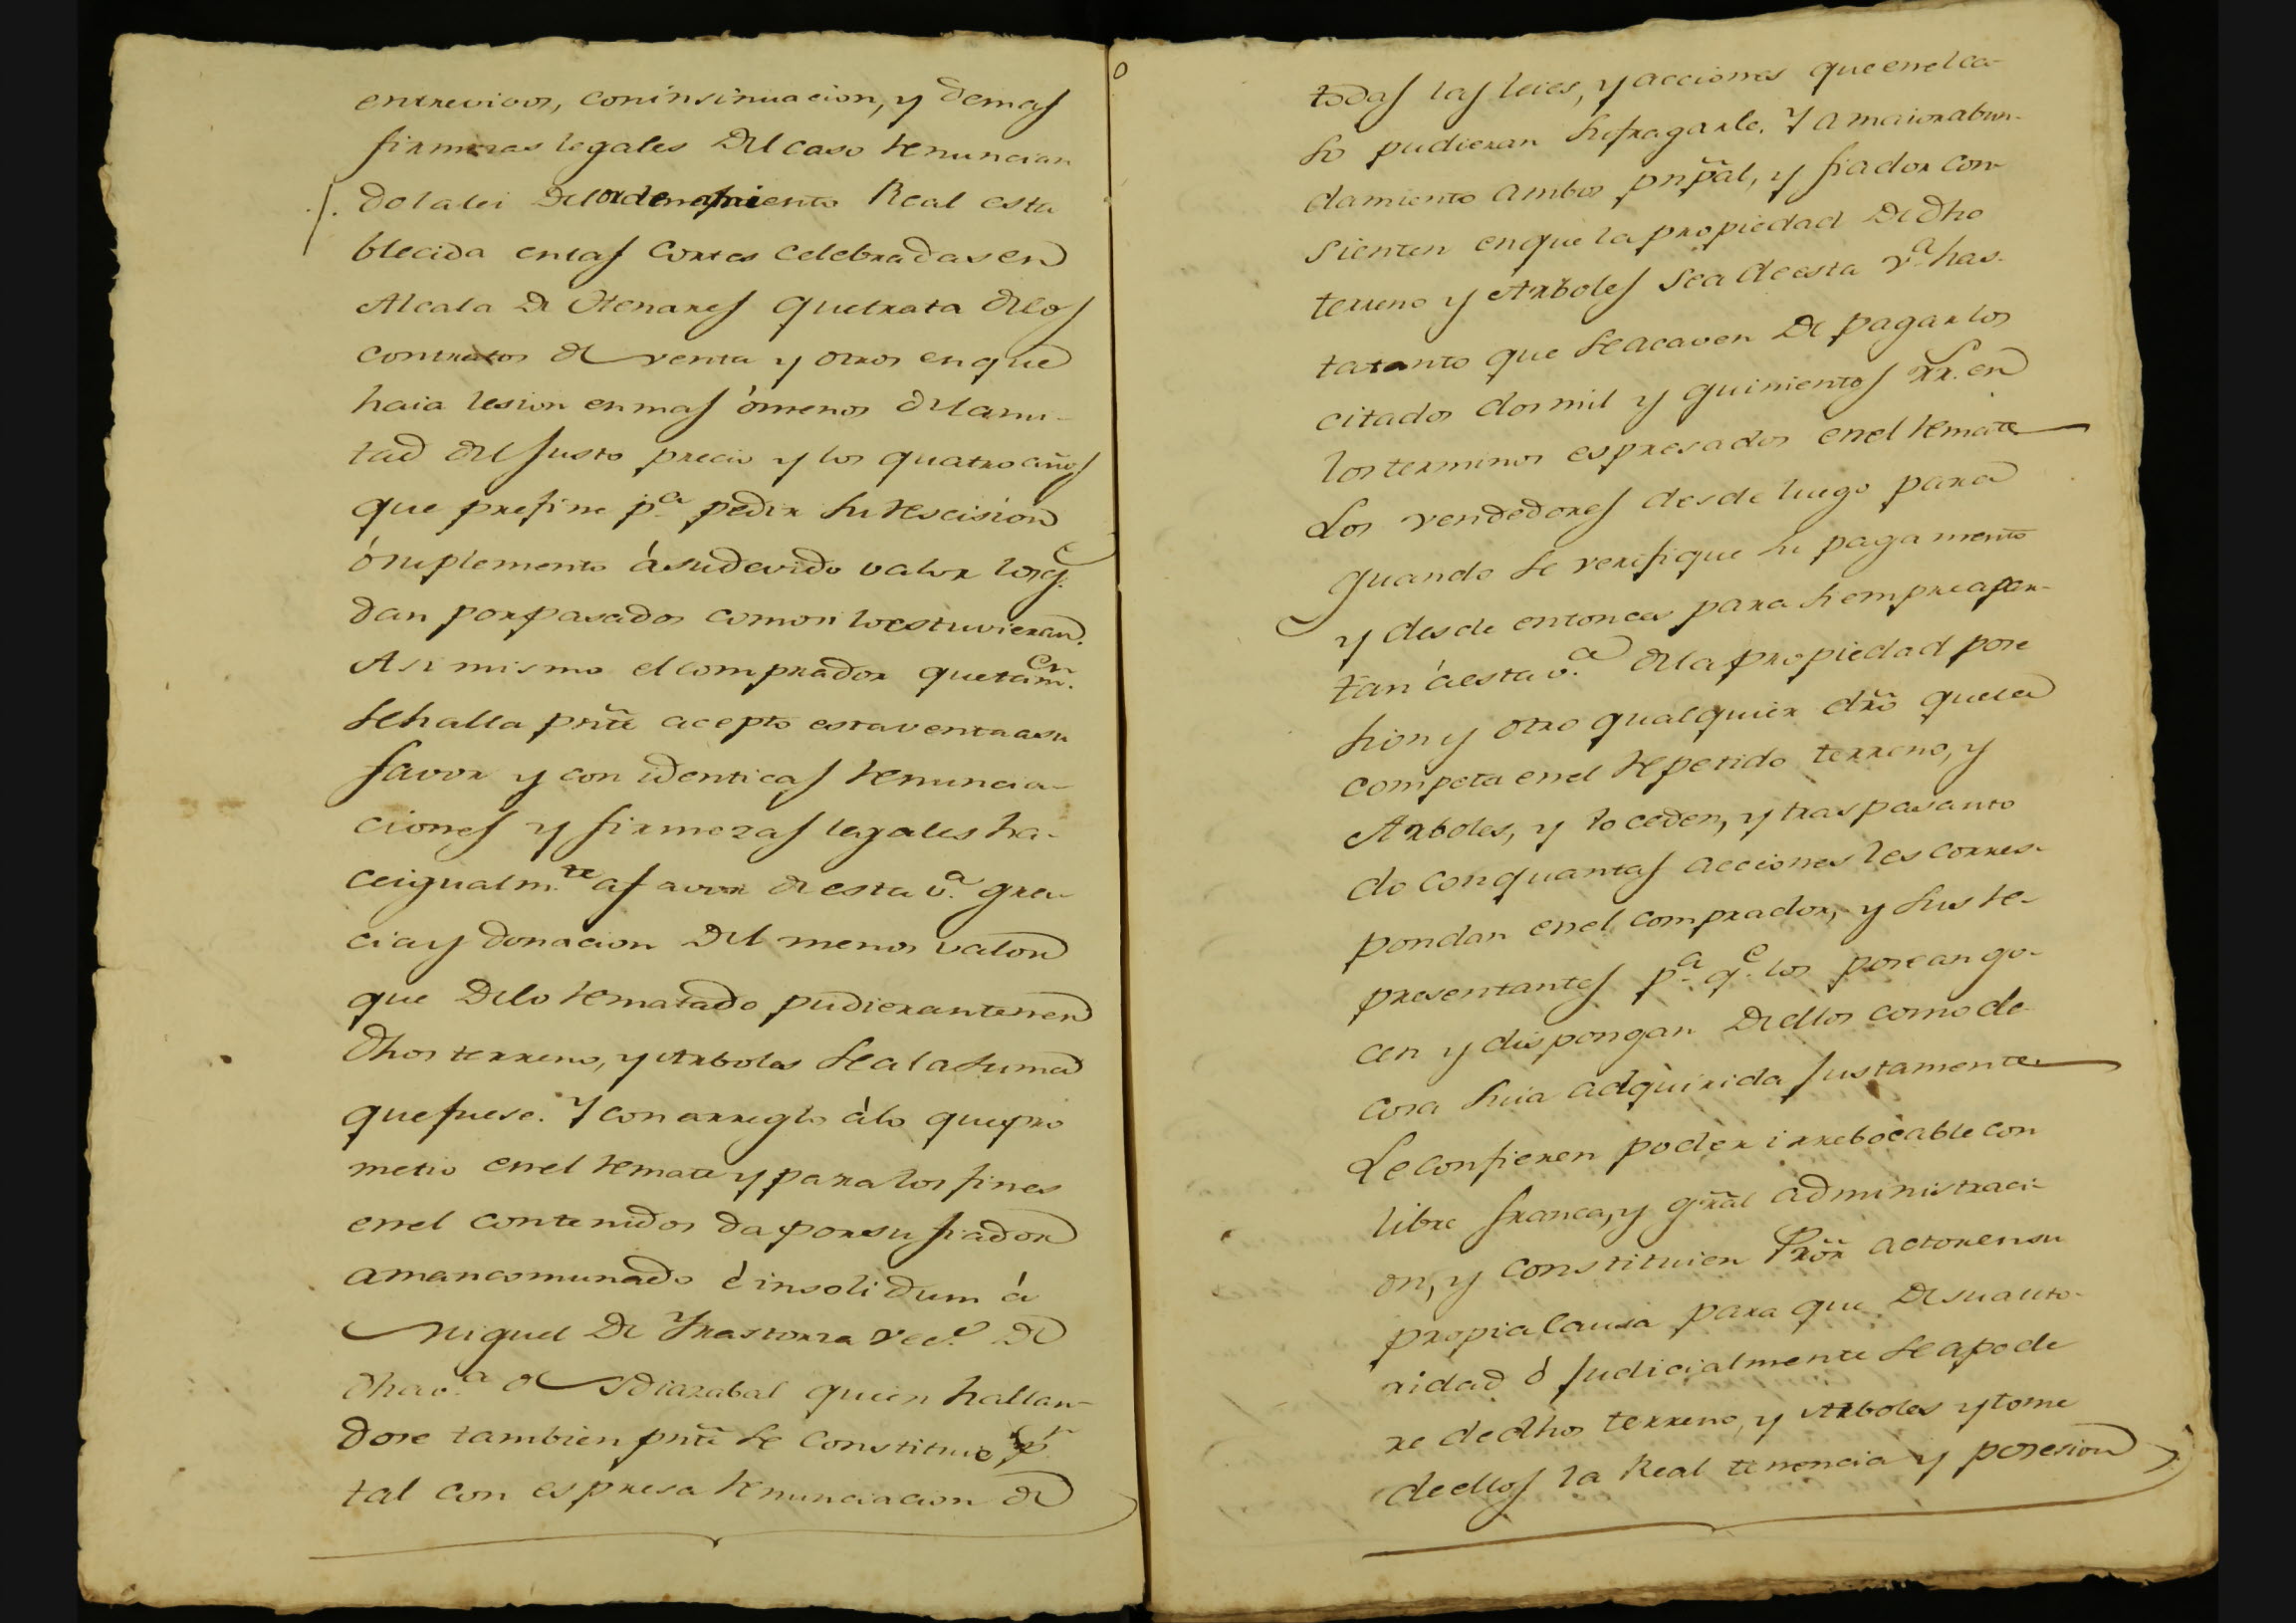 entrevivos, coninsinuacion, y demas
firmezas legales del caso renuncian
do la lei del ordenamiento Real esta
blecida en las Cortes celebradas en
Alcala de Henares que trata de los
contratos de venta y otros en que
haia lesion en mas ó menos de la mi-
tad del justo precio y los quatro años
que prefine p.ª pedir su rescision
ó suplemento á su devido valor los q.e
dan por pasados como si lo estuvieran.
Asi mismo el comprador que tam.en
se halla pñte acepto esta venta a su
favor y con identicas renuncia-
ciones y firmezas legales ha-
ce igualm.te a favor de esta v.ª gra-
cia y donacion del menos valor
que de lo rematado pudieran tener
dhos terreno, y Arboles sea la suma
que fuese. Y con arreglo á lo que pro
metio en el remate y para los fines
en el contenidos da por su fiador
amancomunado é insolidum á
Miguel de Yrastorza vec.o de
dha v.ª de Ydiazabal quien hallan-
dose tambien pñte se constituie p.r
tal con espresa renunciacion de
todas las leies, y acciones que en el ca-
so pudieran sufragarle. Y a maior abun-
damiento ambos pñpal, y fiador con-
sienten en que la propiedad de dho
terreno y Arboles sea de esta v.ª has-
ta tanto que se acaven de pagar los
citados dos mil y quinientos rr.s en
los terminos espresados en el remate
Los vendedores desde luego para
quando se verifique su pagamento
y desde entonces para siempre apar-
tan á esta v.ª de la propiedad pose
sion y otro qualquier dr̃o que la
competa en el repetido terreno, y
Arboles, y lo ceden, y traspasan to
do con quantas acciones les corres-
pondan en el comprador, y sus re-
presentantes p.ª q.e los posean go-
cen y dispongan de ellos como de
cosa suia adquirida justamente
Le confieren poder irrebocable con
libre franca, y gr̃al administraci-
on, y constituien Pr̃or actor en su
propia causa para que de su auto-
ridad ó judicialmente se apode
re de dhos terreno, y Arboles y tome
de ellos la Real tenencia y posesion